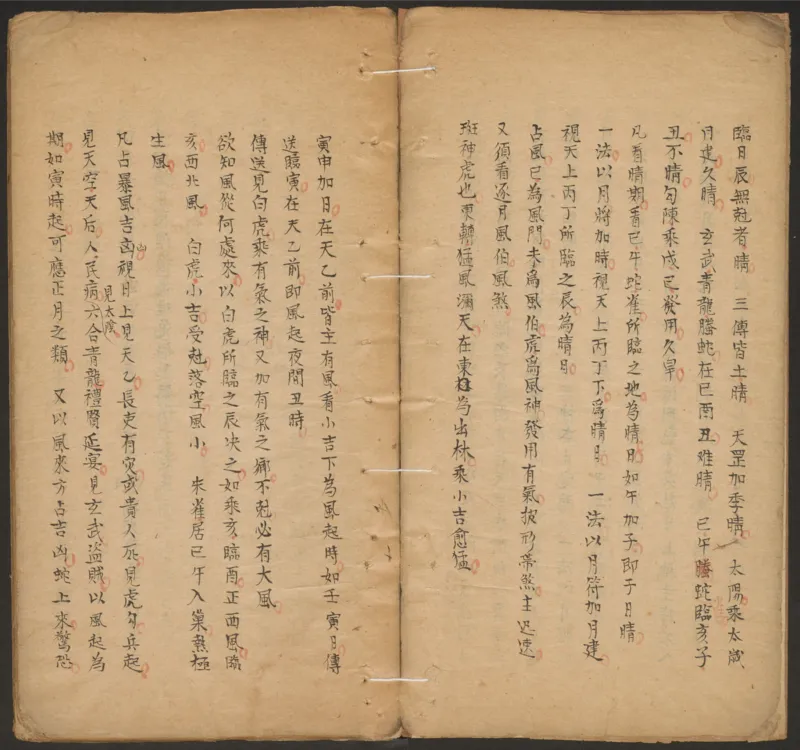 臨日辰無尅者晴　三傳皆土晴　天罡加季晴　太陽乘太歲
月建久晴　玄武青龍螣蛇在巳酉丑难晴　巳午螣蛇臨亥子
丑不晴勾陳乘戊己發用久旱
凡看晴期看巳午蛇雀所臨之地為晴日如午加子即子日晴
一法以月將加時視天上丙丁下為晴日　一法以月符加月建
視天上丙丁所臨之辰為晴日
占風巳為風門未為風伯虎為風神發用有氣披形帶煞主迅速
又須看逐月風伯風煞
班神虎也更轉猛風瀰天在東為出林乘小吉愈猛
寅申加日在天乙前皆主有風看小吉下為風起時如壬寅日傳
送臨寅在天乙前即風起夜間丑時
傳送見白虎乘有氣之神又加有氣之鄉不尅必有大風
欲知風從何處來以白虎所臨之辰决之如乘亥臨酉正西風臨
亥西北風　白虎小吉受尅落空風小　朱雀居巳午入巢無極
生風
凡占暴風吉凶視日上見天乙長吏有灾或貴人死見虎勾兵起
見天空天后人民病見太陰六合青龍禮賢延宴見玄武盜賊以風起為
期如寅時起可應正月之類　又以風來方占吉凶蛇上來驚恐